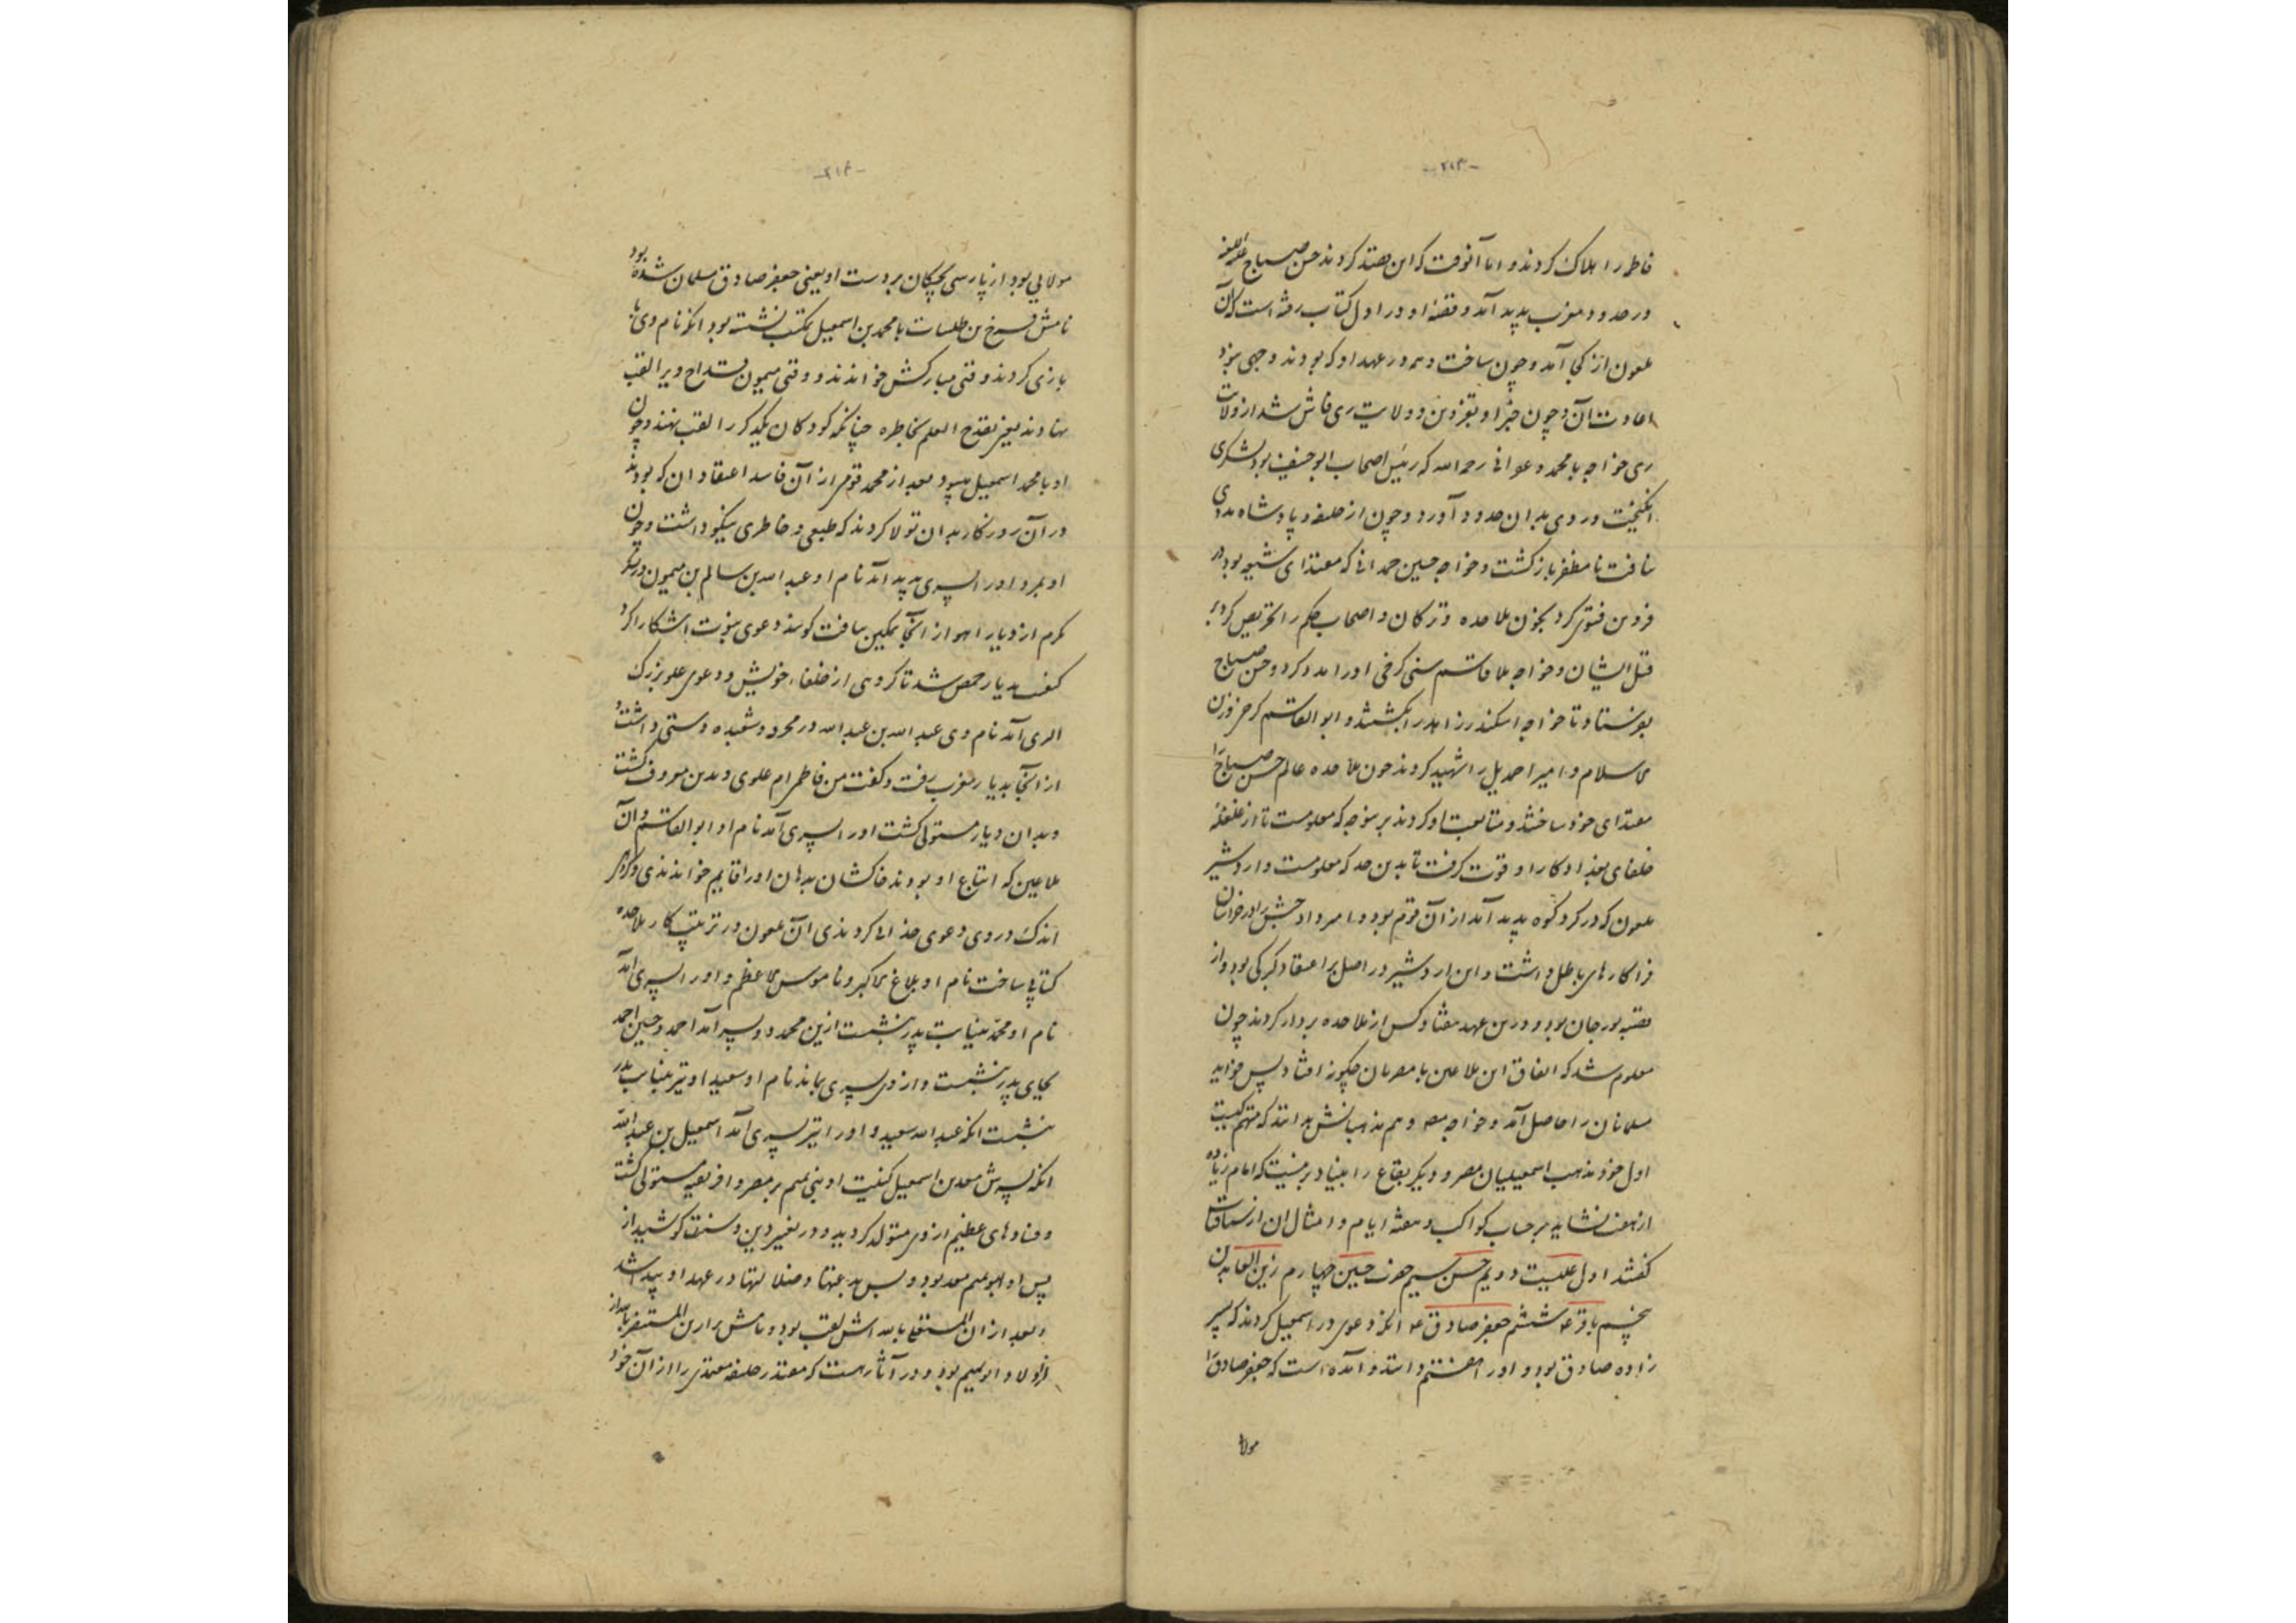 -۲۱۳-
فاطر را هلاک کردند و اما آنوقت که این قصد کردند حسن صباح علیه اللعنه
در حدود مغرب پدید آمد و قصهٔ او در اول کتاب رفته است که آن
ملعون از کجا آمد و چون ساخت و هم در عهد او که بودند و جهی نبود
اعادت آن و چون خبر او بقزوین و ولایت ری فاش شد از ولات
ری خواجه با محمد دعوانی رحمه الله که رئیس اصحاب ابو حنیفه بود لشکری
انگیخت و روی بدان حدود آورد و چون از خلیفه و پادشاه مددی
نیافت نامظفر بازگشت و خواجه حسین حمدانی که مقتدای شیعه بود در
قزوین فتوی کرد بخون ملاحده و ترکان و اصحاب حکم را تحریص کرد بر
قتل ایشان و خواجه بلا قاسم سنی کرخی او را مدد کرد و حسن صباح
بفرستاد تا خواجه اسکندر زاهد را بکشتند و ابو القاسم کرخی قزوین
کاسلام و امیر احمدیل را شهید کردند چون ملاحده عالم حسن صباح را
مقتدای خود ساختند و متابعت او کردند بر نوجه که معلومست تا از غلغلهٔ
خلفای بغداد کار او قوت گرفت تا بدین حد که معلومست و اردشیر
ملعون که در کردکوه پدید آمد از آن قوم بود و امیرداد حبشی را در خراسان
فراکارهای باطل داشت و این اردشیر در اصل بر اعتقاد گبرکی بود و از
قصبه بورجان بود و درین عهد هفتاد کس از ملاحده بر دار کردند چون
معلوم شد که اتفاق این ملاعین با مصریان چگونه افتاد پس فواید
مسلمانان را حاصل آمد و خواجه مصر و هم مذهبانش بدانند که متهم کیست
اول خود مذهب اسمعیلیان مصر و دیگر بقاع را بنیاد بر منیست که امام زیاده
از هفت نشاید بر حساب کواکب و هفته ایام و امثال آن ازسباقات
گفتند اول علیست دویم حسن سیم حضرت حسین چهارم زین العابدین
پنجم باقر ع ششم جعفر صادق ع آنگه دعوی در اسمعیل کردند که پسر
زاده صادق بود و او را هفتم دانند و آمده است که جعفر صادق را
مولا
-۲۱۴-
مولایی بود از پارسی بچگان بر دست او یعنی جعفر صادق مسلمان شده بود
نامش فرخ من طلسات با محمد بن اسمعیل بمکتب نشسته بود آنگه نام وی به
بازی کردند وقتی مبارکش خواندند و وقتی میمون قداح و یرا لقب
نهادند یعنی یقدح العلم بخاطره چنانکه کودکان یکدیگر را لقب نهند و چون
او با محمد اسمعیل میبود بعد از محمد قومی از آن فاسد اعتقادان که بودند
در آن روزگار بدان تولا کردند که طبعی و خاطری نیکو داشت و چون
او بمرد او را پسری پدید آمد نام او عبد الله بن سالم بن میمون در عسکر
مکرم از دیار اهواز آنجا تمکین یافت گویند دعوی نبوت اشکارا کرد
گفت بدیار حمص شد تا گروهی از خلفاء خویش و دعوی علو بزرگ
الری آمد نام وی عبد الله بن عبد الله در مخرد و شعبده دستی داشت و
از آنجا بدیار مغرب رفت و گفت من فاطمی ام علوی و بدین معروف گشت
و بدان دیار مستولی گشت او را پسری آمد نام او ابو القاسم و آن
ملاعین که اتباع او بودند خاکشان بدهان او را قایم خواندندی و دیگر
اندک در وی دعوی خدائی کردندی این ملعون در ترتیب کار ملاحده
کتابی ساخت نام او بلاغ کاکبر و ناموس کاعظم و او را پسری آمد
نام او محمد بنیابت پدر بنشست ازین محمد دو پسر آمد احمد و حسین احمد
بجای پدر بنشست و از وی پسری بماند نام او سعید او نیز بنیابت پدر
بنشست آنگه عبد الله سعید و او را نیز پسری آمد اسمعیل بن عبد الله
آنگه پسرش معد بن اسمعیل کنیت او بنی تمیم بر مصر و افریقیه مستولی گشت
و فسادهای عظیم از وی متولد گردید و در تغییر دین و سنت کوشید از
پس او ابو تمیم معد بود و بس بدعتها و ضلالتها در عهد او پیدا شد
و بعد از آن المستعلی بالله اش لقب بود و نامش نزار بن المستنصر بالله از
اولاد ابو تمیم بود و در آثار هست که مقتدر خلیفه معتمدی را از آن خود